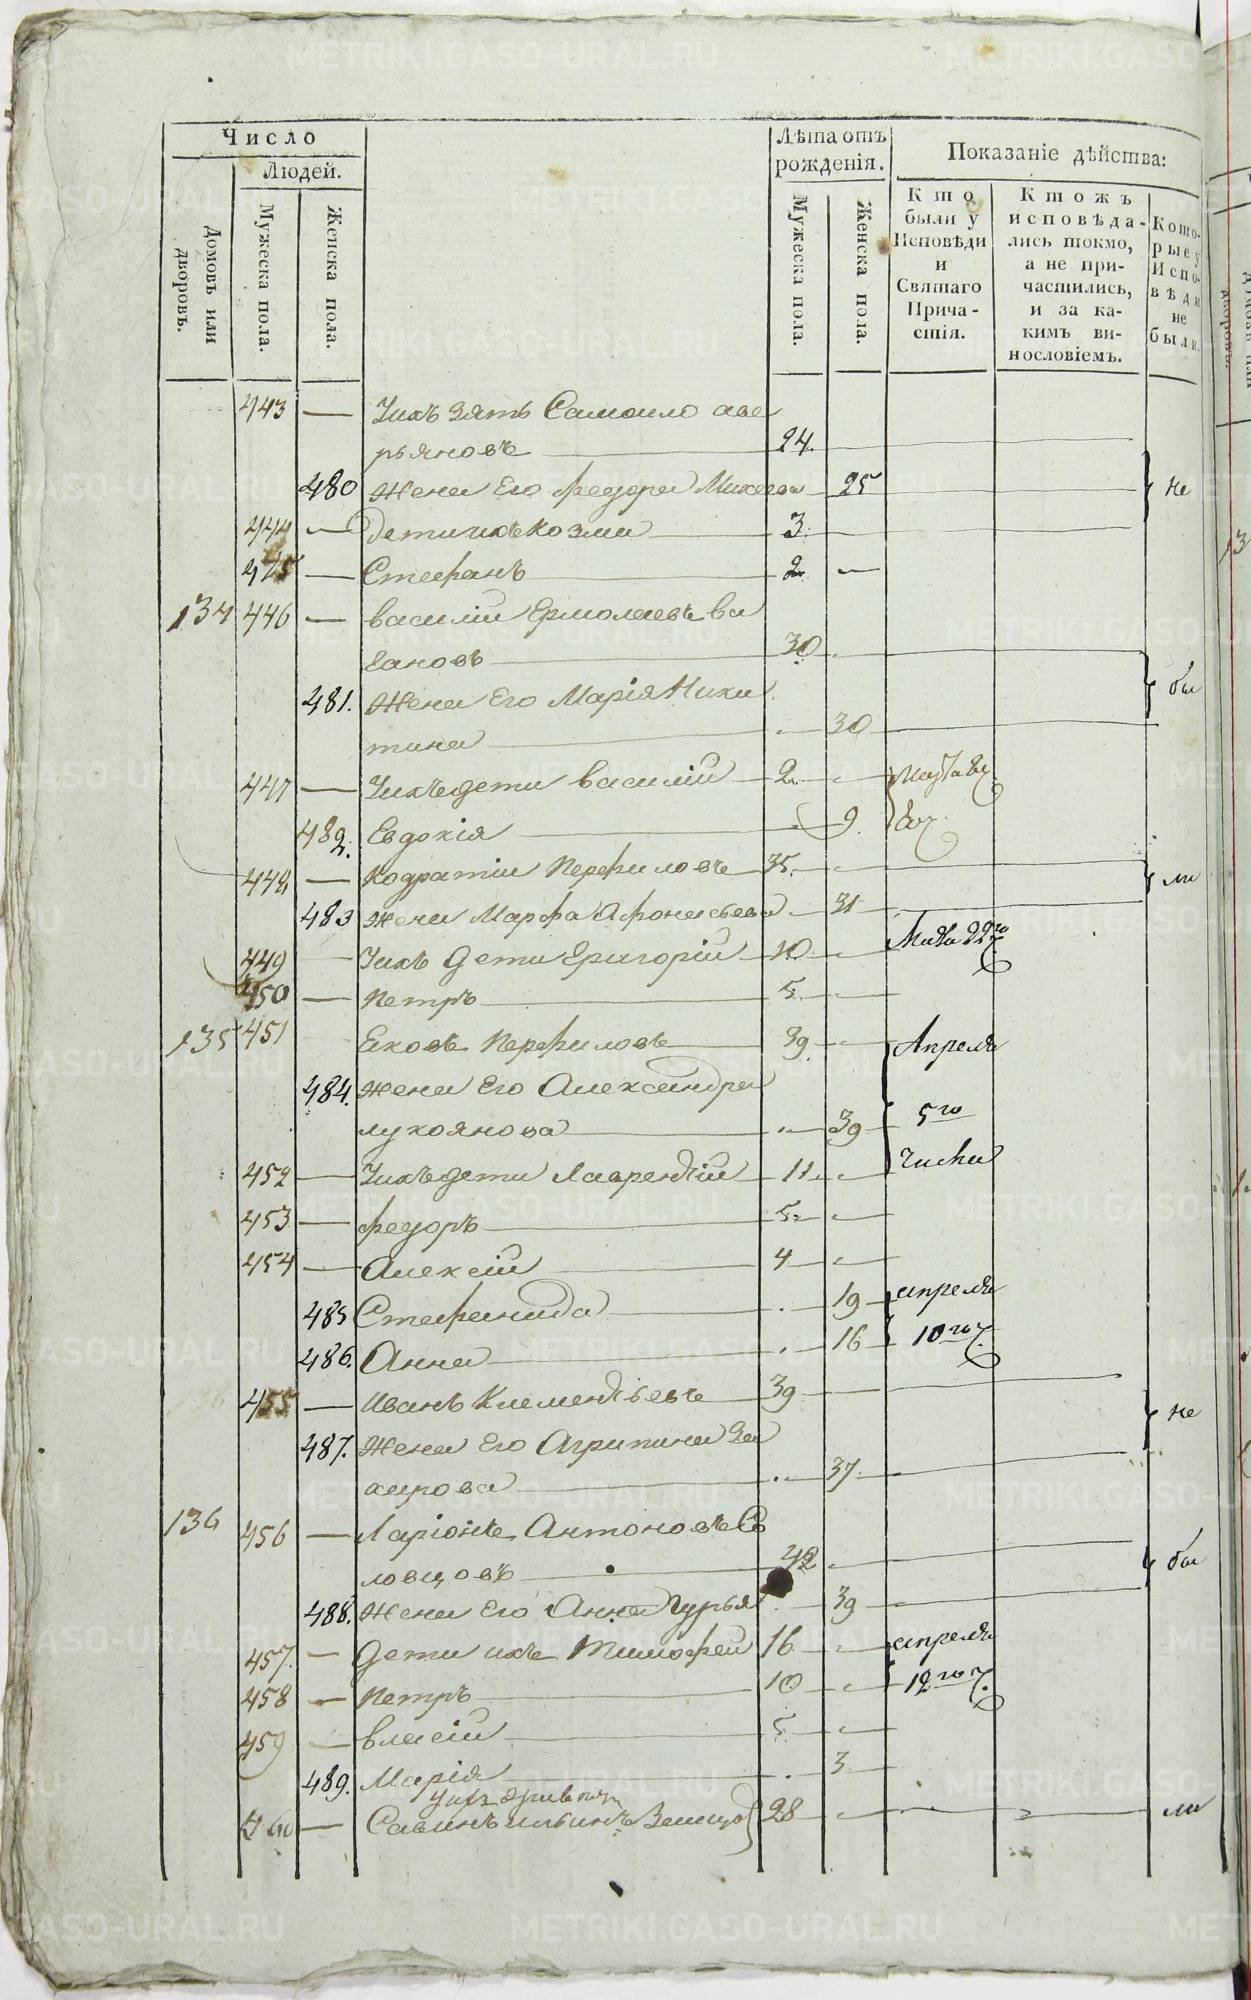 Число
Людей.
Домовъ или дворовъ.
Мужеска пола.
Женска пола.
Лѣта отъ рожденія.
Мужеска пола.
Женска пола.
Показаніе дѣйства:
Кто были у Исповѣди и Святаго Причастія.
Ктожъ исповѣдались токмо, а не причастились, и за какимъ винословіемъ.
Которые у Исповѣди не были.
443 — Ихъ зять Самоило аве
рьяновъ 24.
480 Жена Его Федора 25 не
444 — Дети ихъ Козма 3.
445 — Стефанъ 2 —
134 446 — Василіи Ермолаевъ Ва
гановъ 30
481. Жена Его Марія Ники бы
тина 30
447 — Ихъ дети Василій 2
482. Евдокія 9.
448 — Кодратіи Перфиловъ 35. ли
483 Жена Марфа Афонасьева 31
449 Ихъ Дети Григорій 10 22го
450 — Петръ 5.
135 451 Ековъ Перфиловъ 39 Апреля
484. Жена Его Александра
лукоянова 39 5го
452 — Ихъ дети Лаврентій 11 числа
453 — Федоръ 5.
454 — Алексій 4
485 Стефанида 19 апреля
486. Анна 16 10го
455 — Иванъ Клементьевъ 39 не
487. Жена Его Агрипина За
харова 37.
136 456 — Ларіонъ Антоновъ Со
ловцовъ 42 бы
488. Жена Его Анна Гурья 39
457. — Дети ихъ Тимофей 16 апреля
458 — Петръ 10 12го
459 — Власій 5
489. Марія 3
Савинъ Ильинъ 28 ли